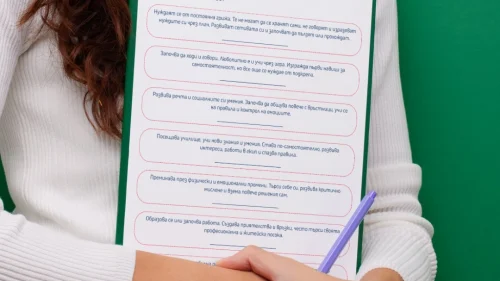 Нуждаят се от постоянна грижа. Те не могат да се хранят сами, не говорят и изразяват
нуждите си чрез плач. Развиват сетивата си и започват да пълзят или прохождат.
Започва да ходи и говори. Любопитно е и учи чрез игра. Изгражда първи навици за
самостоятелност, но все още се нуждае от подкрепа.
Развива речта и социалните си умения. Започва да общува повече с връстници, учи се
на правила и контрол на емоциите.
Посещава училище, учи нови знания и умения. Става по-самостоятелно, развива
интереси, работи в екип и спазва правила.
Преминава през физически и емоционални промени. Търси себе си, развива критично
мислене и взема повече решения сам.
Образова се или започва работа. Създава приятелства и връзки, често търси своята
професионална и житейска посока.